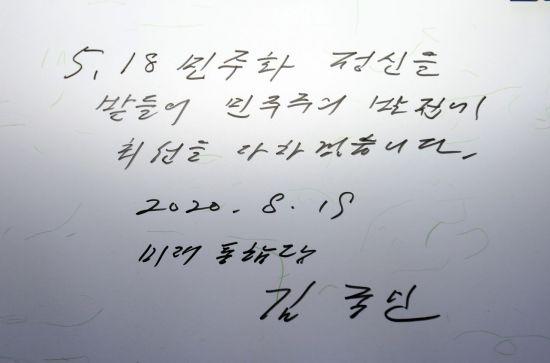 5, 18 민주화 정신을
받들어 민주주의 발전에
최선을 다하겠습니다.
2020. 8. 19
미래통합당
김 종인